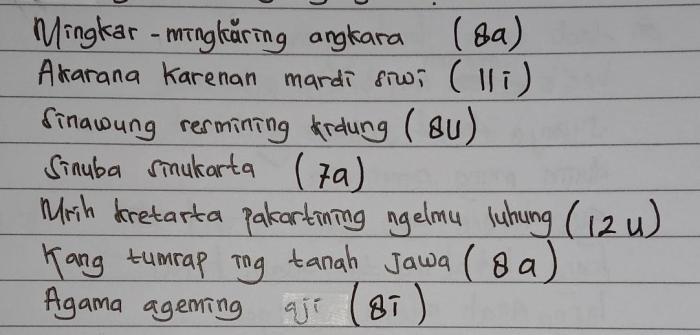 Mingkar-mingkăring angkara (8a)
Akarana Karenan mardi siwi (11i)
Sinawung resmining krdung (8u)
Sinuba sinukarta (7a)
Mrih kretarta pakartining ngelmu luhung (12u)
Kang tumrap ing tanah Jawa (8a)
Agama ageming aji (8i)